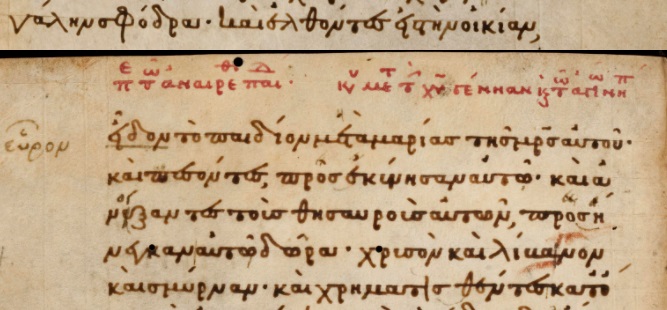 γάλην σφόδρα· καὶ ἐλθόντες εἰς τὴν οἰκίαν,
εὗρον
εἶδον τὸ παιδίον μετὰ μαρίας τῆς μρ̅ς αὐτοῦ·
καὶ πεσόντες, προσεκύνησαν αὐτῶ· καὶ ἀ
νοίξαντες τοὺς θησαυροὺς αὐτῶν, προσή
νεγκαν αὐτῶ δῶρα· χρυσὸν καὶ λίβανον
καὶ σμύρναν· καὶ χρηματισθέντες κατ ὄ